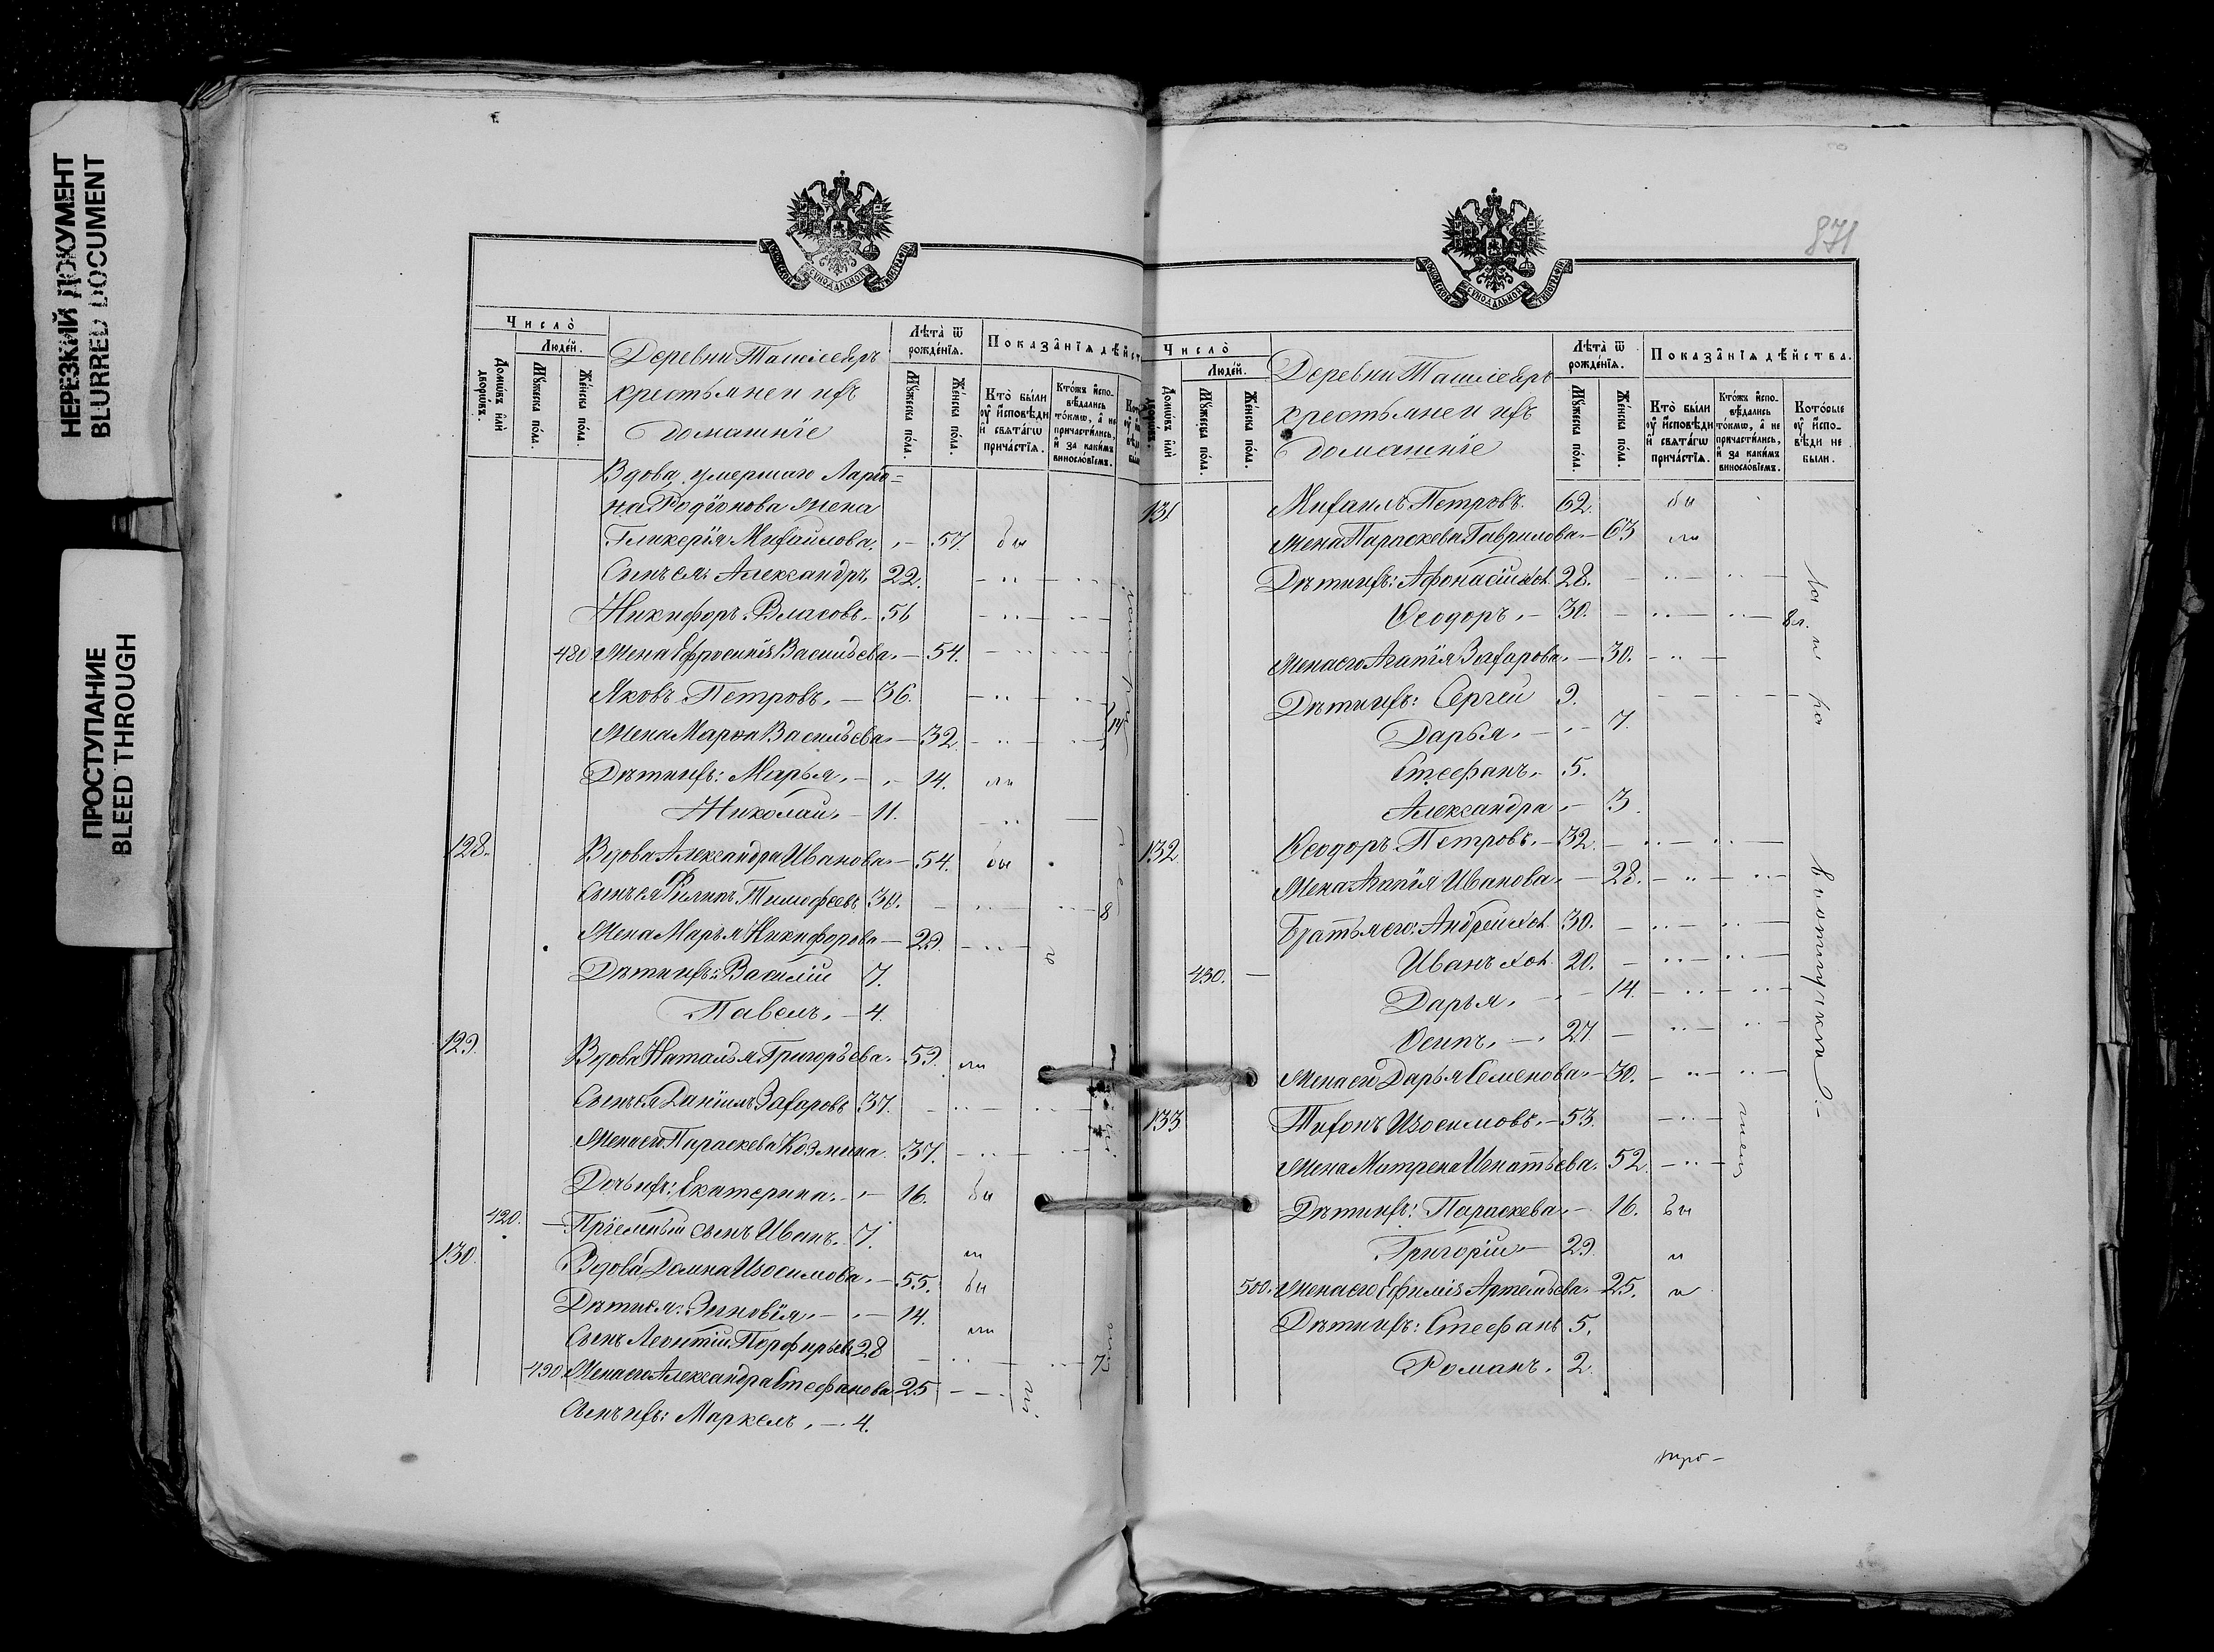 НЕРЕЗКИЙ ДОКУМЕНТ
BLURRED DOCUMENT
ПРОСТУПАНИЕ
BLEED THROUGH
МОСКОВСКОЙ СѴНОДАЛЬНОЙ ТИПОГРАФІИ
Число̀
Людей.
Домѡвъ или дворѡвъ.
Мꙋжеска пола.
Женска пола.
Деревни
крестьяне и ихъ
домашніе
Лѣта ѿ рожденїѧ.
Мꙋжеска пола.
Женска пола.
Показанїѧ дѣйст
Кто были ᲂу исповѣди и свѧтагѡ причастїѧ.
Ктожъ исповѣдались токмѡ, а не причастились, и за какимъ винословїемъ.
Вдова, умершаго Ларіо=
на Родіонова жена
Гликерія Михайлова. 57. бы
Сынъ ея: Александръ 22.
Никифоръ Власовъ. 56
480. Жена Ефросинія Васильева. 54.
Яковъ Петровъ. 36.
Жена Марѳа Васильева. 32. 14
Дѣти ихъ: Марья. 14. ли
Николай. 11.
128. Вдова Александра Иванова. 54. бы
Сынъ ея Филипъ Тимофеевъ 30. 8
Жена Марья Никифорова 29.
Дѣти ихъ: Василій 7.
Павелъ. 4.
129. Вдова Наталья Григорьева. 59. ли
Сынъ ея Даніилъ Захаровъ 37.
Жена его Параскева Козмина. 37.
Дочь ихъ: Екатерина. 16. бы
420. Пріемный сынъ Иванъ. 7. ли
130. Вдова Домна Изосимова. 55. бы
Дѣти ея: Зиновія. 14. ли
Сынъ Леонтій Порфирьевъ 28 7
490 Жена его Александра Стефанова 25
Сынъ ихъ: Маркелъ. 4.
871
МОСКОВСКОЙ СѴНОДАЛЬНОЙ ТИПОГРАФІИ
Число̀
Людей.
Домѡвъ или дворѡвъ.
Мꙋжеска пола.
Женска пола.
Деревни
крестьяне и ихъ
домашніе
Лѣта ѿ рожденїѧ.
Мꙋжеска пола.
Женска пола.
Показанїѧ дѣйства.
Кто были ᲂу исповѣди и свѧтагѡ причастїѧ.
Ктожъ исповѣдались токмѡ, а не причастились, и за какимъ винословїемъ.
Которые ᲂу исповѣди не были.
131 Михаилъ Петровъ. 62. бы
Жена Параскева Гаврилова. 63 ли
Дѣти ихъ: Афонасій хол 28.
Ѳеодоръ. 30. 8
Жена его Агапія Захарова. 30.
Дѣти ихъ: Сергей 9.
Дарья. 7.
Стефанъ. 5.
Александра. 3.
132. Ѳеодоръ Петровъ. 32.
Жена Агапія Иванова. 28.
Братья его: Андрей хол. 30.
430. Иванъ хол. 20.
Дарья. 14.
Осипъ. 27.
Жена его Дарья Семенова. 30.
133 Тихонъ Изосимовъ. 53.
Жена Матрена Игнатьева. 52.
Дѣти ихъ: Параскева. 16. бы
Григорій 29.
500. Жена его Ефимія Артемьева. 25.
Дѣти ихъ: Стефанъ 5.
Романъ. 2.